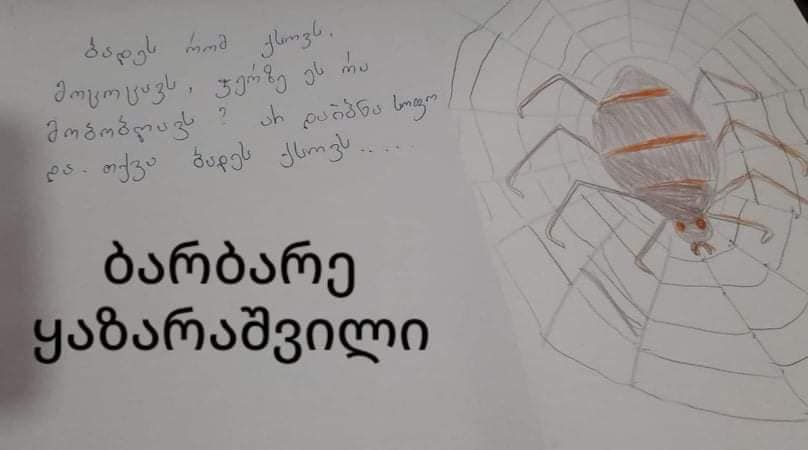 ბადეს რომ ქსოვს.
მოცოცავს, ჯერზე ეს რა
მობობღავს? არ დაიბნა სოფო
და. თქვა ბადეს ქსოვს.....
ბარბარე
ყაზარაშვილი